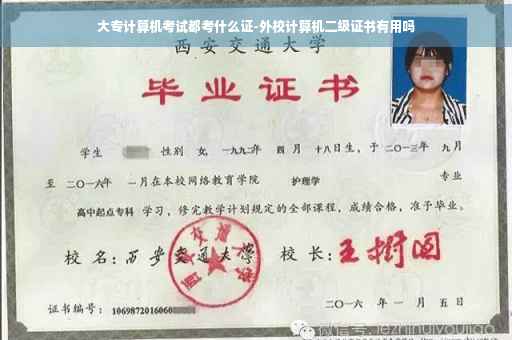 大专计算机考试都考什么证-外校计算机二级证书有用吗
西安交通大学
毕业证书
学生 性别 女,一九九二年 四 月 十八日生,于二〇一三年 九月
至 二〇一六年 一月在本校网络教育学院 护理学 专业
高中起点专科 学习,修完教学计划规定的全部课程,成绩合格,准予毕业。
校 名:西安交通大学 校 长:王树国
西安交通大学
证书编号:1069872016060
二〇一六 年 一 月 五 日
微信号:jezhihuiyoujiao